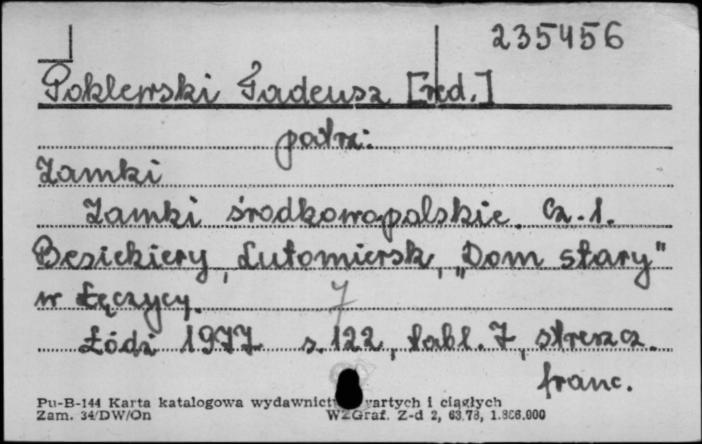 235456
Poklewski Tadeusz [red.]
patrz:
Zamki
Zamki środkowopolskie. Cz. 1.
Besiekiery, Lutomiersk, „Dom stary"
w Łęczycy. 7
Łódź 1977 s. 122, tabl. 7, streszcz.
franc.
Pu-B-144 Karta katalogowa wydawnictw zwartych i ciągłych
Zam. 34/DW/On WZGraf. Z-d 2, 63.78, 1.866.000